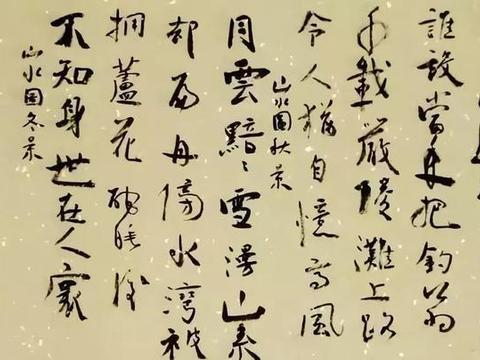 誰識當年把釣翁
千載嚴陵灘上路
令人猶自憶高風
山水圖秋景
同雲黯黯雪漫山系
却扁舟隔水灣被
擁蘆花酣睡後
不知身世在人寰
山水圖冬景